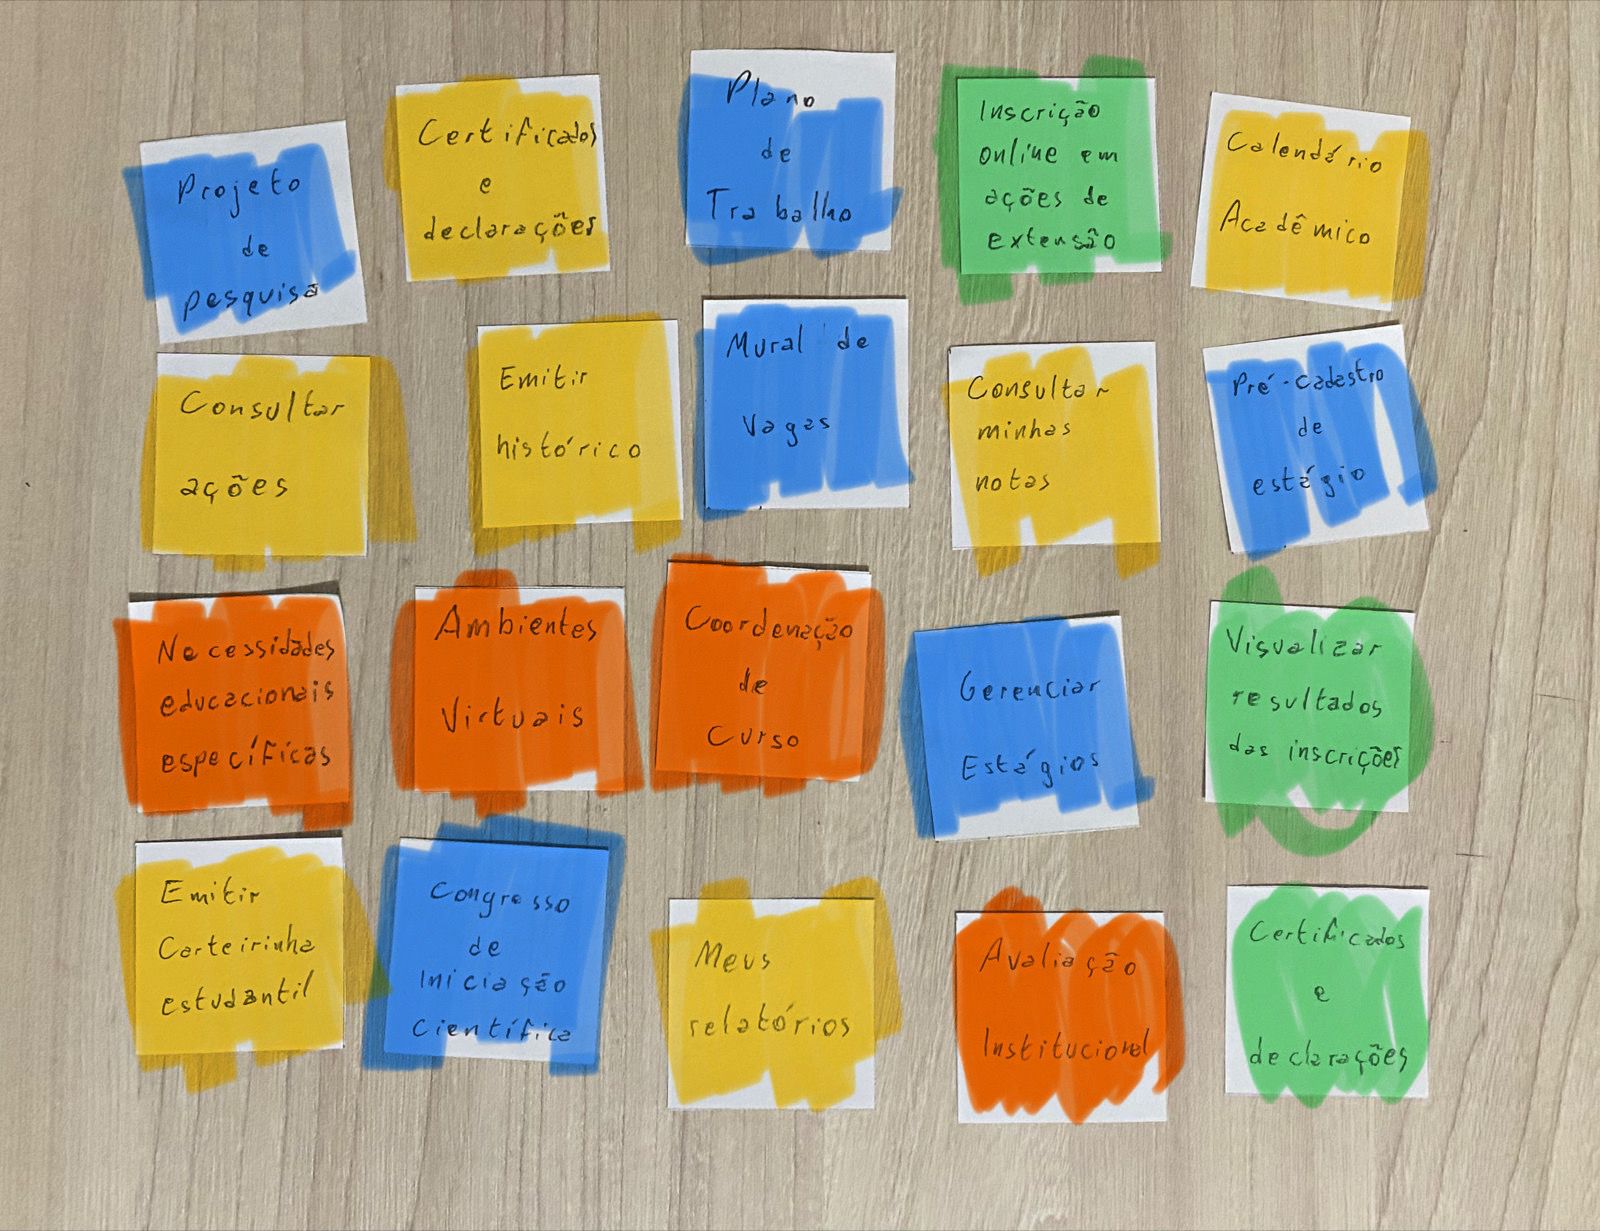 Projeto
de
pesquisa
Certificados
e
declarações
Plano
de
Trabalho
Inscrição
online em
ações de
extensão
Calendário
Acadêmico
Consultar
ações
Emitir
histórico
Mural de
Vagas
Consultar
minhas
notas
Pré-cadastro
de
estágio
Necessidades
educacionais
específicas
Ambientes
Virtuais
Coordenação
de
Curso
Gerenciar
Estágios
Visualizar
resultados
das inscrições
Emitir
Carteirinha
estudantil
Congresso
de
Iniciação
Científica
Meus
relatórios
Avaliação
Institucional
Certificados
e
declarações